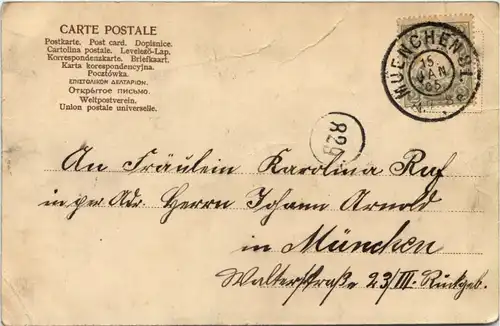 CARTE POSTALE
Postkarte. Post card. Dopisnice.
Cartolina postale. Levelező-Lap.
Korrespondenzkarte. Briefkaart.
Karta korespondencyjna.
Pocztówka.
ΕΠΙΣΤΟΛΙΚΟΝ ΔΕΛΤΑΡΙΟΝ.
Открытое письмо.
Weltpostverein.
Union postale universelle.
MUENCHEN 31.
15
JAN
05
An Fräulein Karolina Ruf
in per Adr. Herrn Johann Arnold
in München
Walterstraße 23/III. Rückgeb.